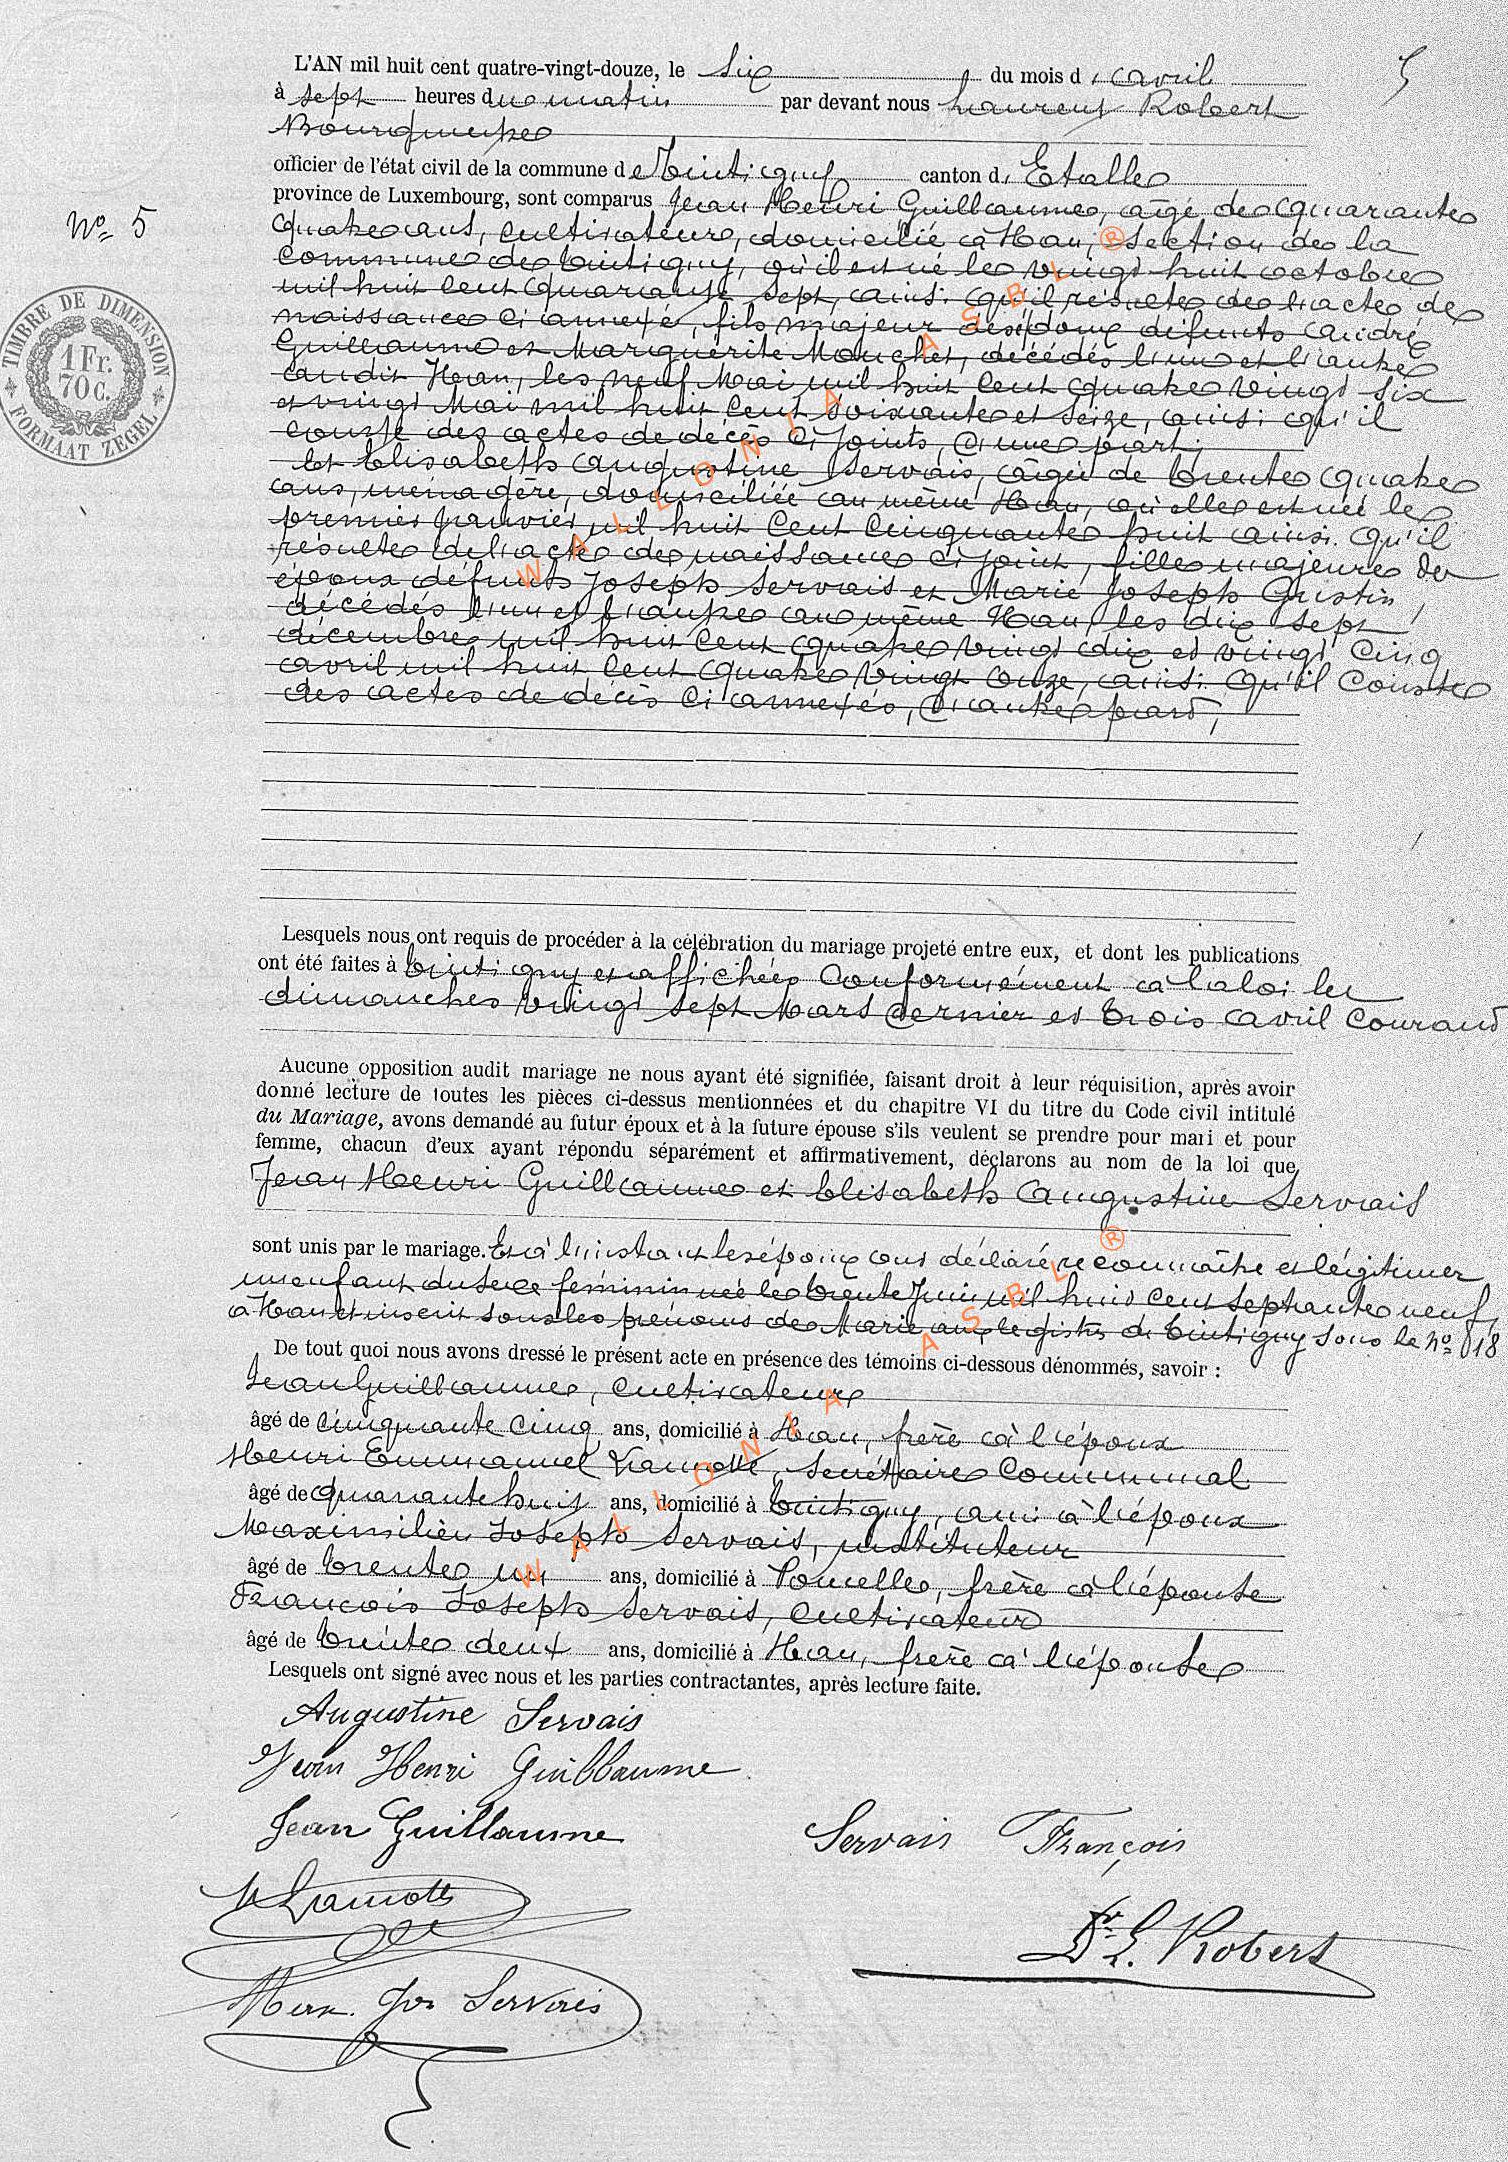 5
L'AN mil huit cent quatre-vingt-douze, le six du mois d'avril
à sept heures du matin par devant nous Laurent Robert
Bourgmestre
officier de l'état civil de la commune de Tintigny canton d'Etalle
province de Luxembourg, sont comparus Jean Henri Guillaume, âgé de quarante
N° 5
quatre ans, cultivateur, domicilié à Han, section de la
commune de Tintigny, où il est né le vingt huit octobre
mil huit cent quarante sept, ainsi qu'il résulte de l'acte de
naissance ci annexé, fils majeur des époux défunts André
Guillaume et Marguérite Mouchet, décédés l'un et l'autre
audit Han, les neuf Mai mil huit cent quatre vingt six
et vingt Mai mil huit cent soixante et seize, ainsi qu'il
conste des actes de décès ci joints, d'une part;
Et Elisabeth Augustine Servais, âgée de trente quatre
ans, ménagère, domiciliée au même Han, où elle est née le
premier janvier mil huit cent cinquante huit ainsi qu'il
résulte de l'acte de naissance ci joint, fille majeure des
époux défunts Joseph Servais et Marie Joseph Gustin,
décédés l'un et l'autre au même Han, les dix sept
décembre mil huit cent quatre vingt dix et vingt cinq
avril mil huit cent quatre vingt onze, ainsi qu'il conste
des actes de décès ci annexés, d'autre part,
TIMBRE DE DIMENSION
1 Fr.
70 c.
FORMAAT ZEGEL
Lesquels nous ont requis de procéder à la célébration du mariage projeté entre eux, et dont les publications
ont été faites à Tintigny et affichées conformément à la loi les
dimanches vingt sept Mars dernier et trois avril courant
Aucune opposition audit mariage ne nous ayant été signifiée, faisant droit à leur réquisition, après avoir
donné lecture de toutes les pièces ci-dessus mentionnées et du chapitre VI du titre du Code civil intitulé
du Mariage, avons demandé au futur époux et à la future épouse s'ils veulent se prendre pour mari et pour
femme, chacun d'eux ayant répondu séparément et affirmativement, déclarons au nom de la loi que
Jean Henri Guillaume et Elisabeth Augustine Servais
sont unis par le mariage. Et à l'instant les époux ont déclaré reconnaître et légitimer
un enfant du sexe féminin née le trente Juin mil huit cent septante neuf,
à Han et inscrit sous les prénoms de Marie aux registres de Tintigny sous le N° 18
De tout quoi nous avons dressé le présent acte en présence des témoins ci-dessous dénommés, savoir :
Jean Guillaume, cultivateur
âgé de cinquante cinq ans, domicilié à Han, frère à l'époux
Henri Emmanuel Lamotte, secrétaire communal
âgé de quarante huit ans, domicilié à Tintigny, ami à l'époux
Maximilien Joseph Servais, instituteur
âgé de trente un ans, domicilié à Poncelle, frère à l'épouse
François Joseph Servais, cultivateur
âgé de trente deux ans, domicilié à Han, frère à l'épouse
Lesquels ont signé avec nous et les parties contractantes, après lecture faite.
Augustine Servais
Jean Henri Guillaume
Jean Guillaume
Servais François
H Lamotte
Dr L. Robert
Max. Jos Servais
WALLONIA ASBL ®
WALLONIA ASBL ®